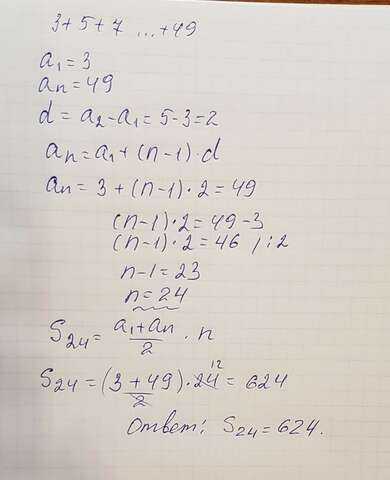 3+5+7 ...+49
a₁=3
aₙ=49
d = a₂-a₁= 5-3=2
aₙ=a₁+(n-1)·d
aₙ= 3+(n-1)·2=49
(n-1)·2=49-3
(n-1)·2=46 /:2
n-1=23
n=24
S₂₄= (a₁+aₙ)/2 · n
S₂₄=(3+49)/2 · 24 12 = 624
Ответ: S₂₄=624.